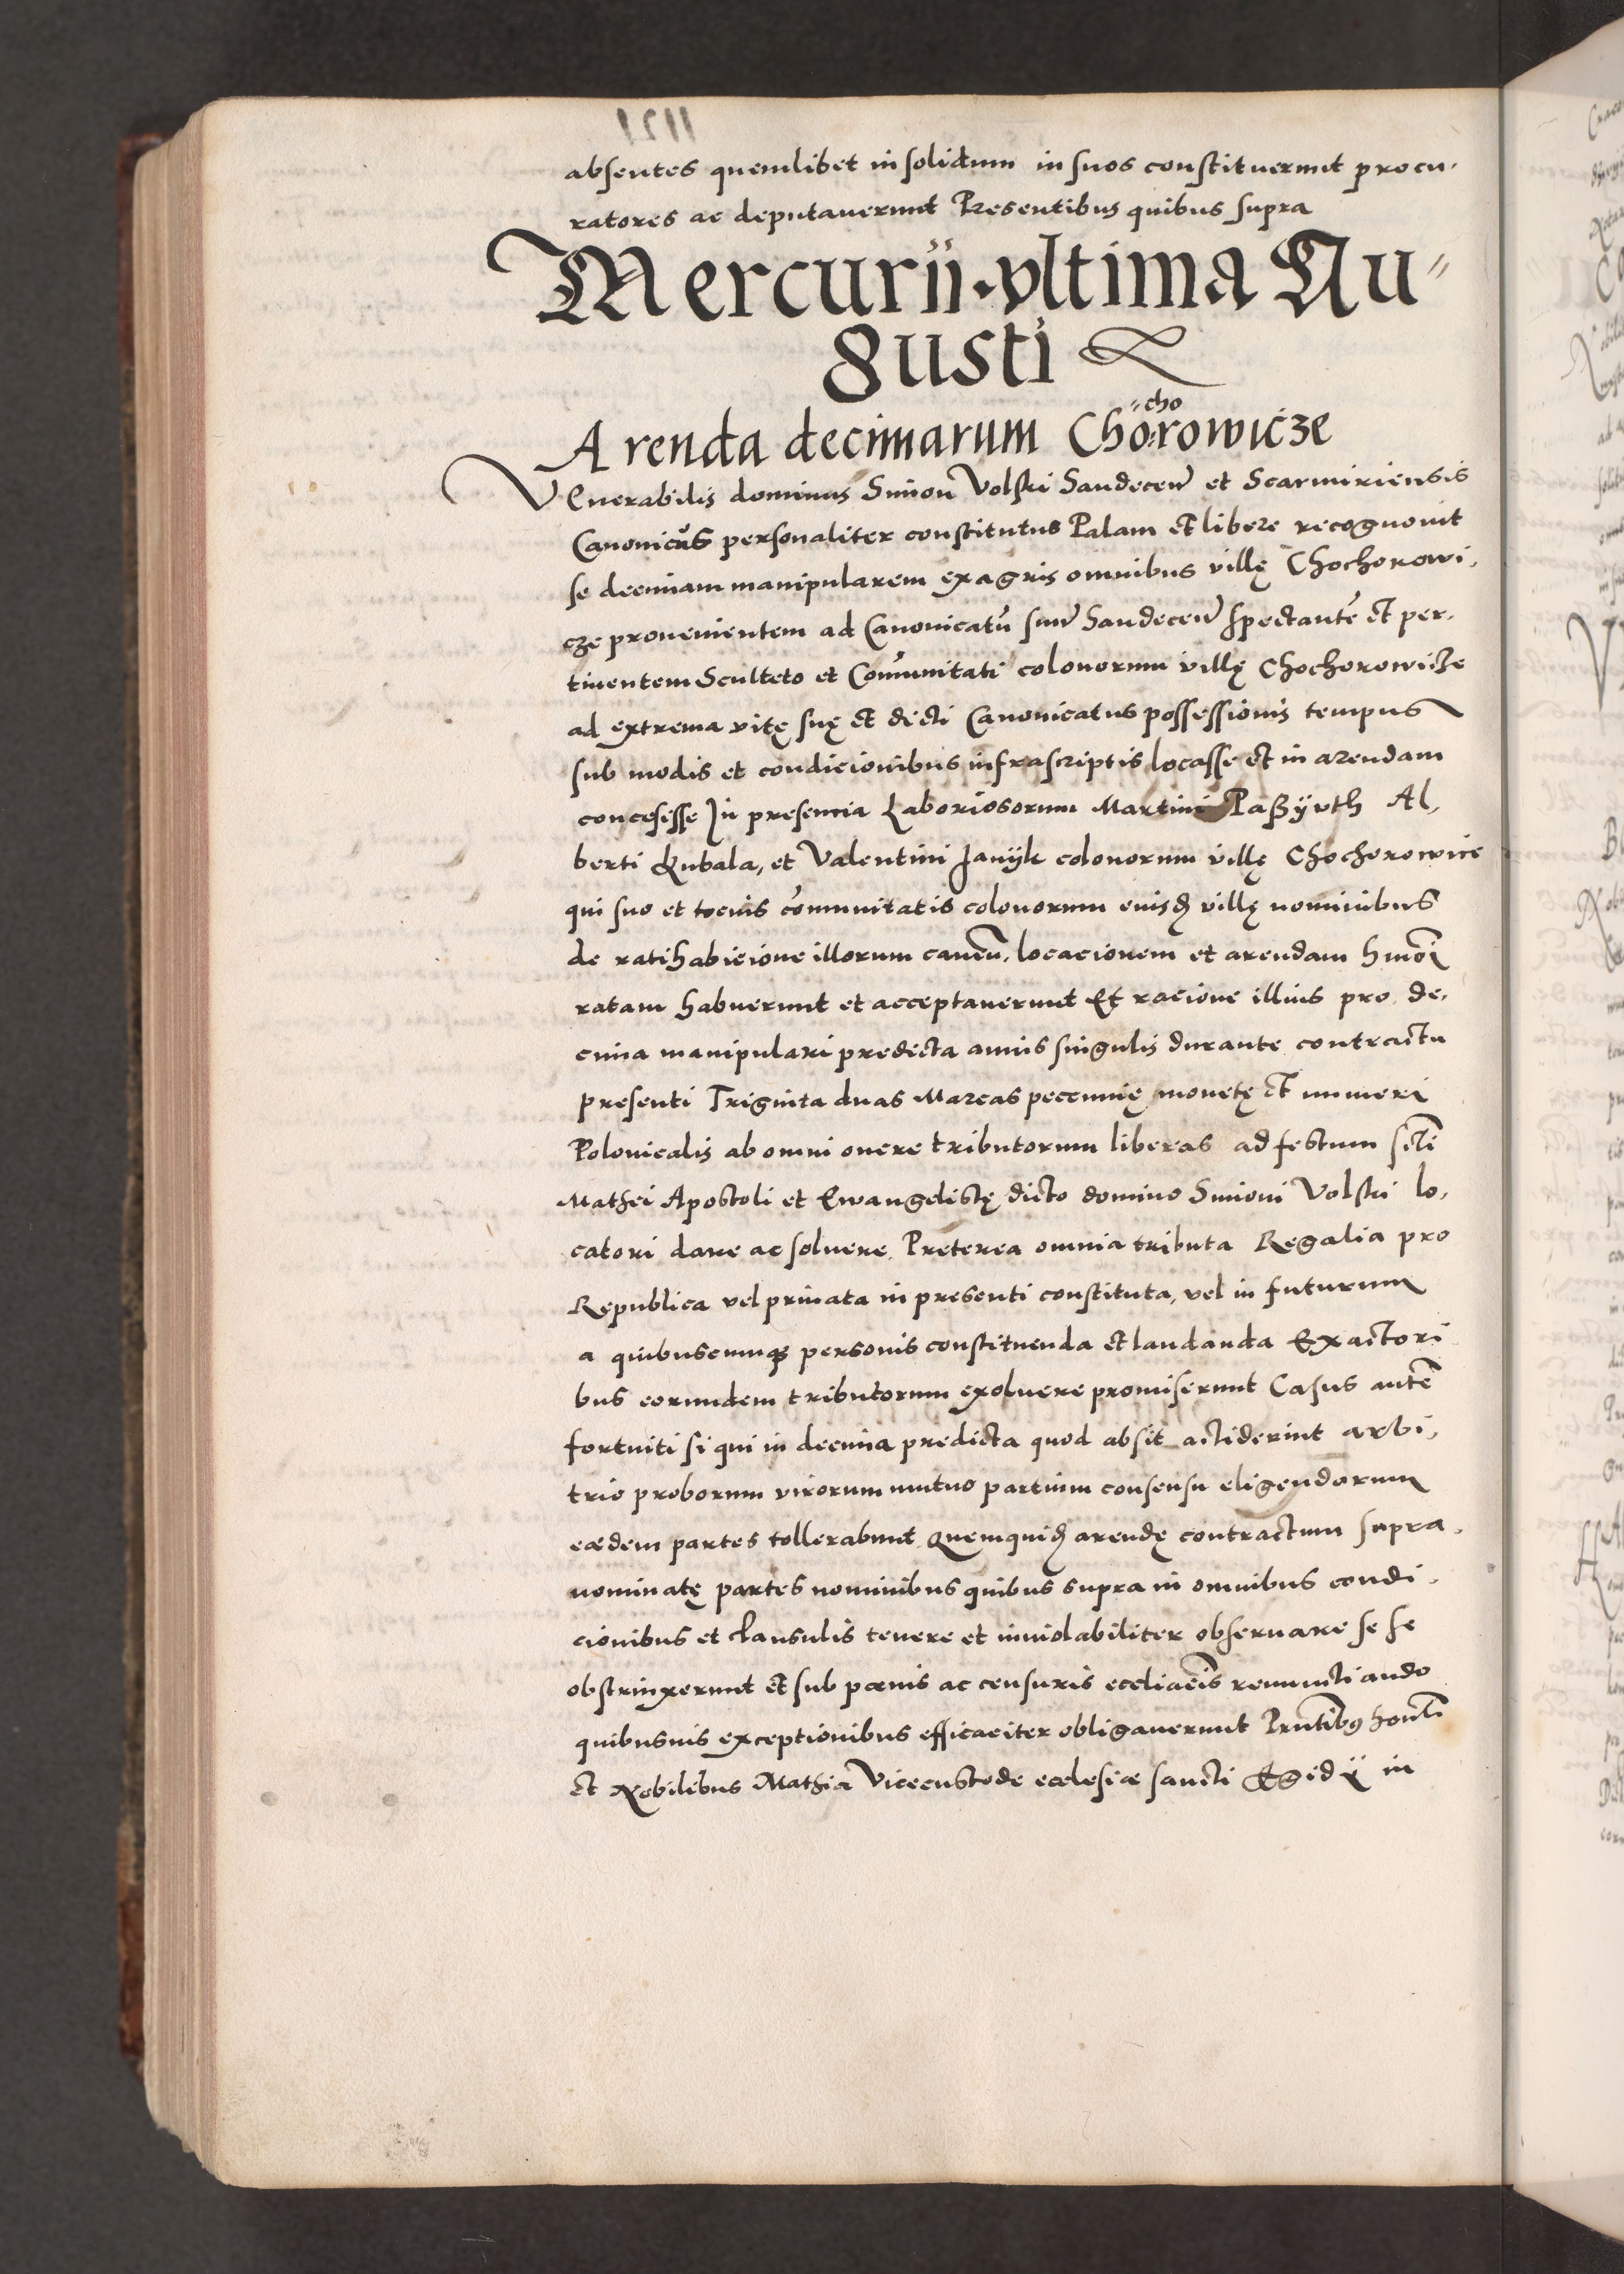 absentes quemlibet in solidum in suos constituerunt procu-
ratores ac deputauerunt Presentibus quibus supra
Mercurii vltima Au-
gusti
Arenda decimarum Cho"cho"rowicze
VEnerabilis dominus Simon Volski Sandeceñ et Scarmiriensis
Canonicůs personaliter constitutus Palam et libere recognouit
se decimam manipularem ex agris omnibus villę Chochorowi-
cze prouenientem ad Canonicatū suũ Sandeceñ spectantē et per-
tinentem Sculteto et Com̃unitati colonorum villę Chochorowicze
ad extrema vitę suę et dicti Canonicatus possessionis tempus
sub modis et condicionibus infrascriptis locasse et in arendam
concesisse In presencia Laboriosorum Martini Paßyuth Al-
berti Kubala, et Valentini Janyk colonorum villę Chochorowice
qui suo et tocius com̃unitatis colonorum euisđ villę nominibus
de ratihabicione illorum caueñ. locacionem et arendam hmōi
ratam habuerunt et acceptauerunt Et racione illius pro de-
cima manipulari predicta annis singulis durante contractu
presenti Triginta duas Marcas peccunię monetę et numeri
Polonicalis ab omni onere tributorum liberas ad festum scti
Mathei Apostoli et Ewangelistę dicto domino Simoni Volski lo-
catori dare ac soluere. Preterea omnia tributa Regalia pro
Republica vel priuata in presenti constituta, vel in futurum
a quibuscumque personis constituenda et laudanda Exactori
bus eorundem tributorum exoluere promiserunt Casus autē
fortuiti si qui in decima predicta quod absit acciderint arbi-
trio proborum virorum mutuo partium consensu eligendorum
eædem partes tollerabunt Quemquiđ arendę contractum supra-
nominatę partes nominibus quibus supra in omnibus condi-
cionibus et clausulis tenere et inuiolabiliter obseruare se se
obstrinxerunt et sub pœnis ac censuris eccliacis renunctiando
quibusuis exceptionibus efficaciter obligauerunt Prntibꝫ honti
et Nobilibus Mathia Vicecustode ecclesiæ sancti Egidy in